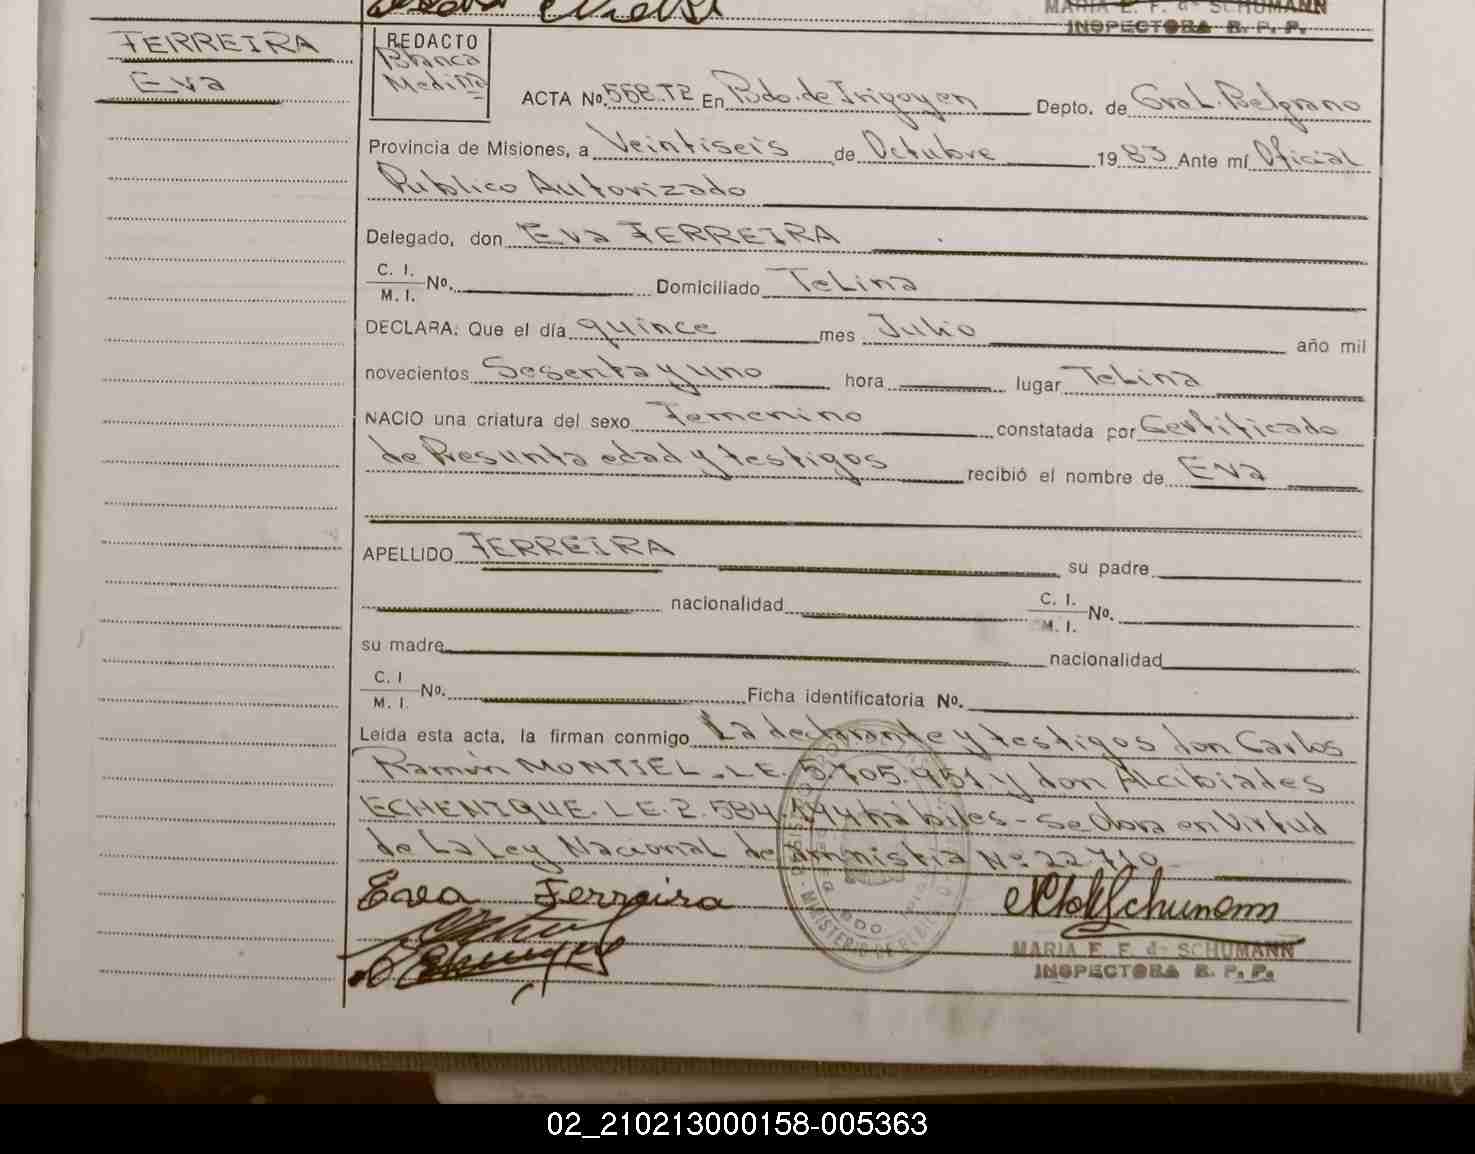 MARIA E. F. de SCHUMANN
INSPECTORA R. P. P.
FERREIRA
Eva
REDACTO
Blanca
Medina
ACTA No. 568.T2 En Bdo. de Irigoyen Depto. de Gral. Belgrano
Provincia de Misiones, a Veintiseis de Octubre 1983 Ante mí Oficial
Publico Autorizado
Delegado, don Eva FERREIRA
C. I.
M. I. No. Domiciliado Tekina
DECLARA: Que el día quince mes Julio año mil
novecientos Sesenta y uno hora lugar Tekina
NACIO una criatura del sexo Femenino constatada por Certificado
de Presunta edad y testigos recibió el nombre de Eva
APELLIDO FERREIRA su padre
nacionalidad C. I.
M. I. No.
su madre nacionalidad
C. I
M. I. No. Ficha identificatoria No.
Leída esta acta, la firman conmigo La declarante y testigos don Carlos
Ramón MONTIEL. L.E. 5.705.951. y don Alcibiades
ECHENIQUE. L.E. 2.584. hábiles - Se labra en virtud
de La Ley Nacional de amnistia No. 22.710
Eva Ferreira
MARIA E. F. de SCHUMANN
INSPECTORA R. P. P.
02_210213000158-005363